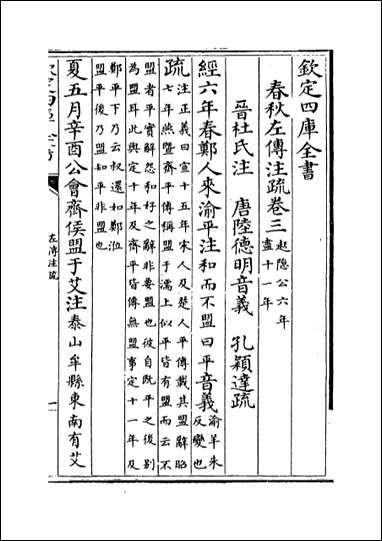 欽定四庫全書
春秋左傳注疏卷三
起隱公六年
盡十一年
晉杜氏注 唐陸德明音義 孔穎達疏
經六年春鄭人來渝平注和而不盟曰平音義
渝羊朱
反變也
疏
注正義曰宣十五年宋人及楚人平傳載其盟辭昭
七年燕暨齊平傳稱盟于濡上似平皆有盟而云不
盟者平實解怨和好之辭非要盟也彼自既平之後別
為盟耳此與定十年及齊平皆傳無盟事定十一年及
鄭平下乃云叔還如鄭涖
盟平後乃盟知平非盟也
夏五月辛酉公會齊侯盟于艾注泰山牟縣東南有艾
左傳注疏
一